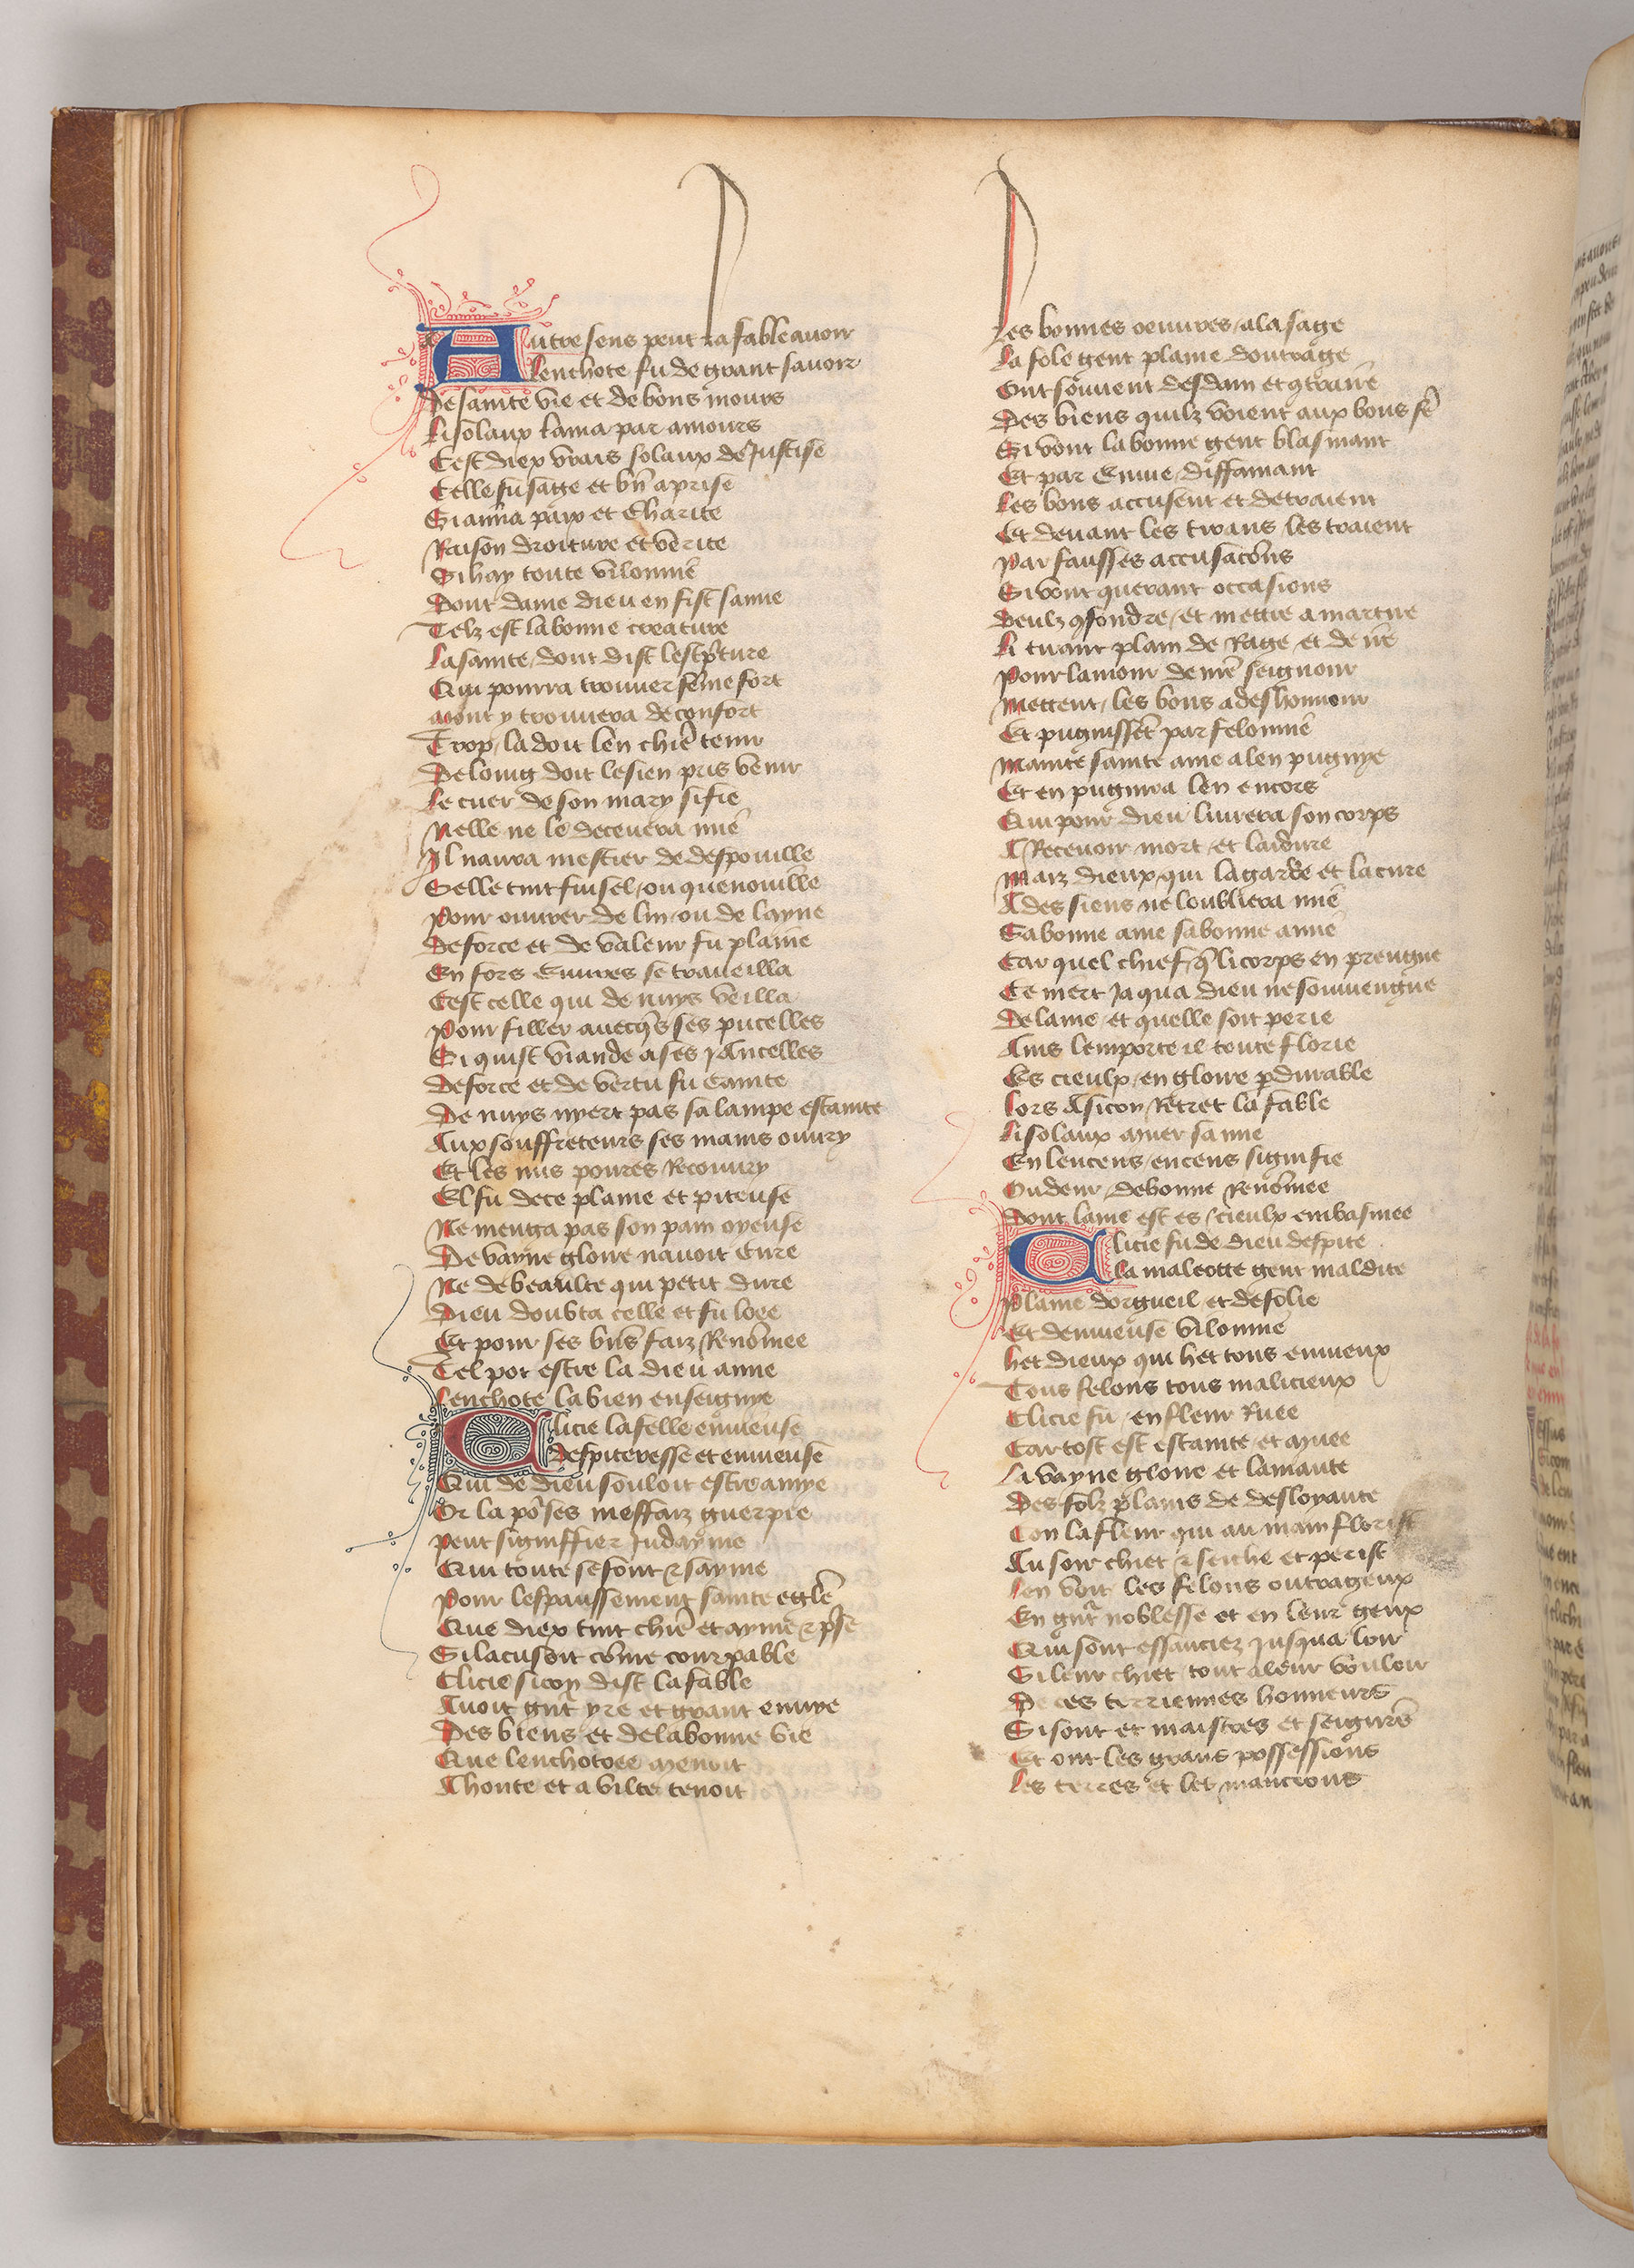 Autre sens peut la fable avoir
Lenchote fu de grant savoir
De sainte vie et de bons mours
Li solaux lama par amours
Cest diex vrais solaux de Justise
Celle fu sage et bn̄ aprise
Si ama paix et Charite
Raison droiture et verite
Si hay toute vilonnie
Dont dame dieu en fist samie
Telz est la bonne creature
La sainte dont dist lescpture
Qui pourra trouver feme fort
Mont y trouvera de confort
Trop la doit len chier tenir
De loing doit le sien pris venir
Le cuer de son mary si fie
Nelle ne le decevera mie
Il naura mestier de despouille
Selle tint fuisel ou quenouille
Pour ouvrer de lin ou de layne
De force et de valeur fu plaine
En fors Euvres se traveilla
Cest celle qui de nuys veilla
Pour filler avecqs ses pucelles
Si quist viande a ses Ancelles
De force et de vertu fu Cainte
De nuys nyert pas sa lampe estainte
Aux souffreteurs ses mains ouvry
Et les nus poures Recouvry
El fu de ce plaine et piteuse
Ne menga pas son pain oyeuse
De vayne gloire navoit Cure
Ne de beaulte qui petit dure
Dieu doubta celle et fu loee
Et pour ses bn̄s faiz Renōmee
Tel pot estre la dieu amie
Lenchote la bien enseignye
Clicie la felle envieuse
Despiteresse et envieuse
Qui de dieu souloit estre amye
Or la por ses meffaiz guerpie
Peut signiffier Judayme
Qui toute se font
Pour lespaussement sainte eglē
Que diex tint chiē et ayme
Si lacusoit cōme courpable
Clicie sicoȳ dist la fable
Avoit gnt yre et grant envye
Des biens et de la bonne vie
Que lenchotoee menoit
A honte et a vilte tenoit
Les bonnes oeuvres a la sage
La fole gent plaine doutrage
Ont souvent desdain et
Des biens quilz voient aux bons
Si vont la bonne gent blasmant
Et par Envie diffamant
Les bons accusent et detraient
Et devant les tirans les traient
Par fausses accusacōns
Si vont querant occasions
Deulz ꝯfondre et mettre a martire
Li tirant plain de Rage et de ire
Pour lamour de nrē seignour
Mettent les bons a deshonnour
Et pugnissēt par felonnie
Mainte sainte ame a len pugnye
Et en pugnira len encors
Qui pour dieu livrera son corps
A Recevoir mort et laidure
Maiz dieux qui la garde et la cure
A des siens ne loubliera mie
Sa bonne ame sa bonne amie
Car quel chief q̄ li corps en prengne
Ce niert Ja qua dieu ne souviengne
De lame et quelle soit perie
Ains lemporte il toute florie
Es cieulx en gloire pdurable
Lors A sicoȳ Retret la fable
Li solaux muer samie
En lencens encens signifie
Oudeur de bonne Renōmee
Dont lame est es cieulx embasmee
Clicie fu de dieu despite
La maleotte gent maldite
Plaine dorgueil et de folie
Et denvieuse vilonnie
Het dieux qui het tous envieux
Tous felons tous malicieux
Clicie fu en fleur Ruee
Car tost est estainte et muee
La vayne gloire et la
Des folz plains de desloyaute
Con la fleur qui au main florist
Au soir chiet et seiche et perist
Len voit les felons outrageux
En gnt noblesse et en leur geux
Qui sont essauciez Jusqua loir
Si leur chiet tout a leur vouloir
De ces terriennes honneurs
Si sont et maistres et seignrs
Et ont les grans possessions
Les terres et les mancions